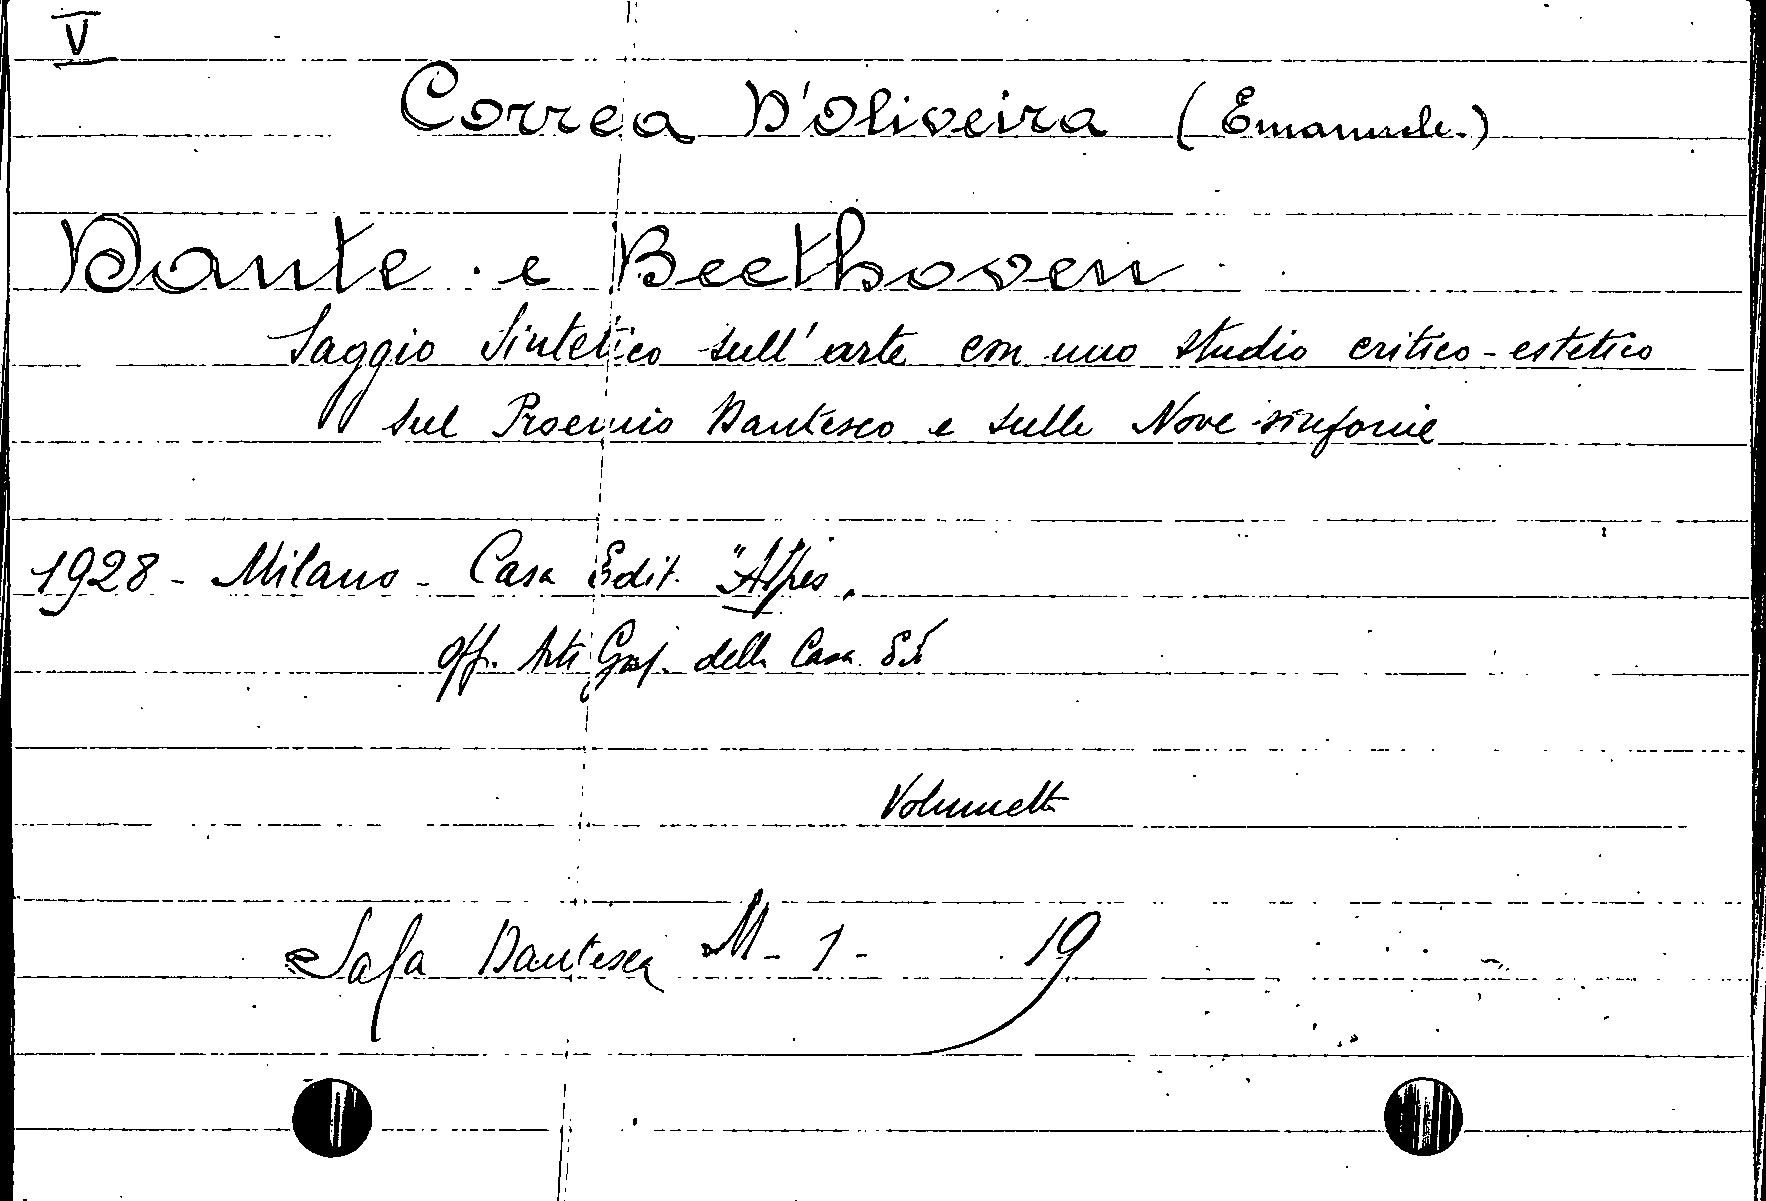 V
Correa D'Oliveira (Emanuele.)
Dante e Beethoven
Saggio Sintetico sull'arte con uno studio critico-estetico
sul Proemio Dantesco e sulle Nove sinfonie
1928 - Milano - Casa Edit. "Alpes"
Off. Arti Graf. della Casa Ed.
Volumetto
Sala Dantesca M - 1 - 19